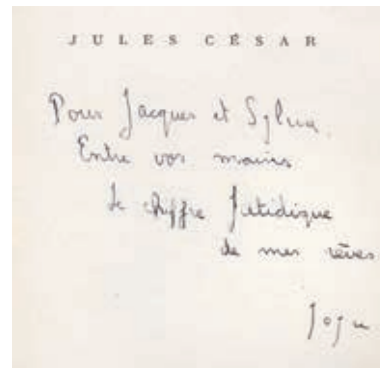 JULES CÉSAR
Pour Jacques et Sylvia.
Entre vos mains
le chiffre fatidique
de mes rêves